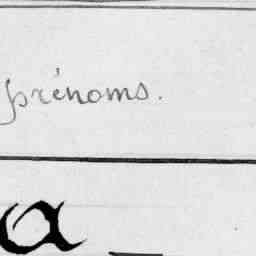 prénoms.
a